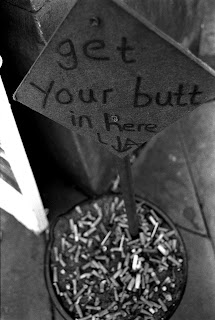 get
Your butt
in Here
LJA